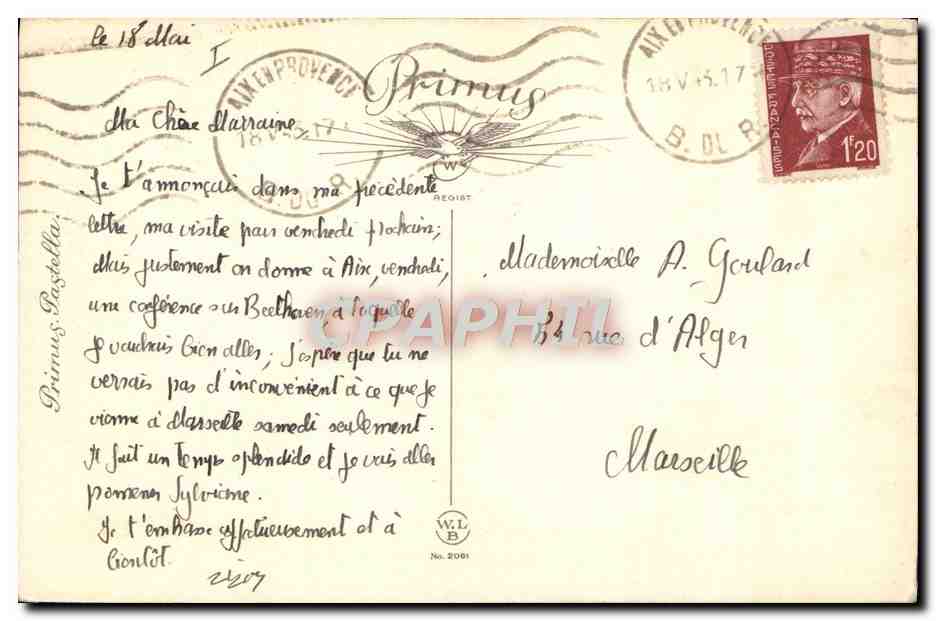 le 18 Mai
I
AIX EN PROVENCE
18 V 43.17
B. DU R.
Primus
W
REGIST
AIX EN PROVENCE
18 V 43.17
B. DU R.
POSTES FRANÇAISES
1F20
Ma Chère Marraine
Je t'annonçais dans ma précédente
lettre, ma visite pour vendredi prochain;
Mais justement on donne à Aix, vendredi,
une conférence sur Beethoven, à laquelle
je voudrais bien aller; j'espère que tu ne
verrais pas d'inconvénient à ce que je
vienne à Marseille samedi seulement.
Il fait un temps splendide et je vais aller
promener Sylviane.
Je t'embrasse affectueusement et à
bientôt.
Mademoiselle A. Goulard
54 rue d'Alger
Marseille
Primus-Pastella.
W.L
B
No. 2061
CPAPHIL